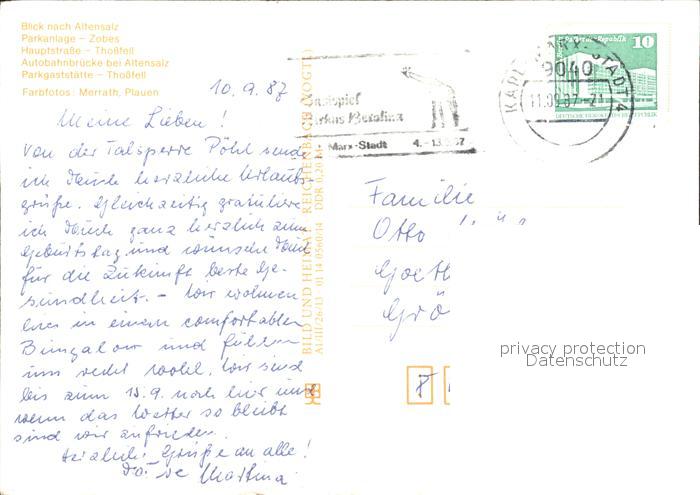 Blick nach Altensalz
Parkanlage – Zobes
Hauptstraße – Thoßfell
Autobahnbrücke bei Altensalz
Parkgaststätte – Thoßfell
Farbfotos: Merrath, Plauen
10.9.87
Meine Lieben!
Von der Talsperre Pöhl sende
ich Euch herzliche Urlaubs-
grüße. Gleichzeitig gratuliere
ich Euch ganz herzlich zum
Geburtstag und wünsche
für die Zukunft beste Ge-
sundheit. – Wir wohnen
hier in einem comfortablen
Bungalow und fühlen
uns recht wohl. Wir sind
bis zum 13.9. noch hier und
wenn das Wetter so bleibt
sind wir zufrieden.
Herzliche Grüße an alle!
Martina
BILD UND HEIMAT REICHENBACH (VOGTL)
A1/III/26/13 01 14 0560/14 DDR 0,20 M
Gastspiel
Zirkus Berolina
Marx-Stadt 4.-13.9.87
KARL-MARX-STADT 4
9040
11.09.87-21
10
DEUTSCHE DEMOKRATISCHE REPUBLIK
Familie
Otto
Goeth
Grö
privacy protection
Datenschutz